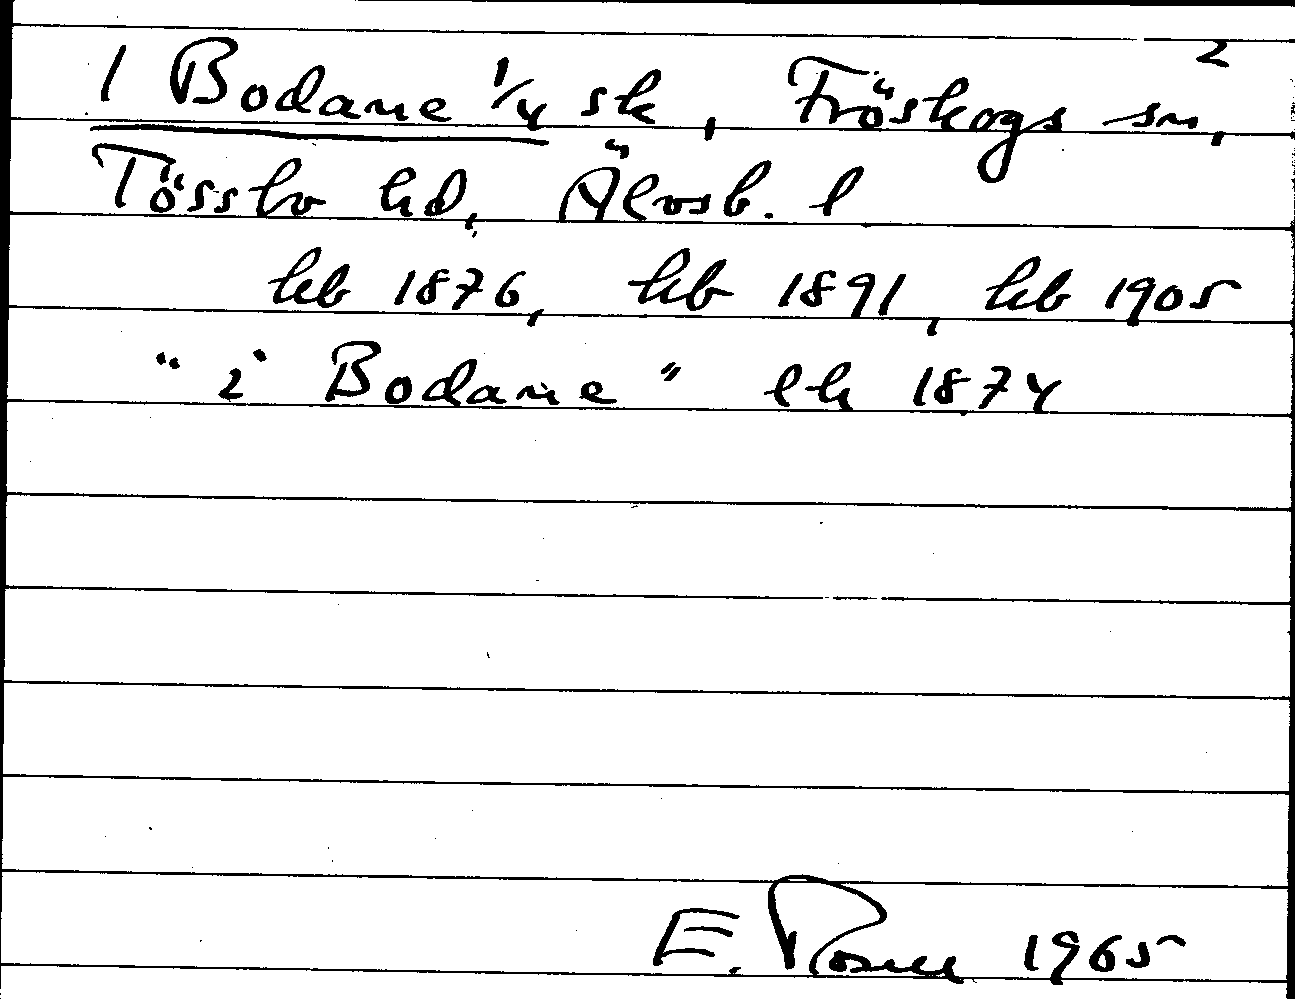 2
1 Bodane 1/4 sk, Fröskogs sn,
Tössbo hd, Älvsb. l
hb 1876, hb 1891, hb 1905
"i Bodane" lh 1874
E. 1965